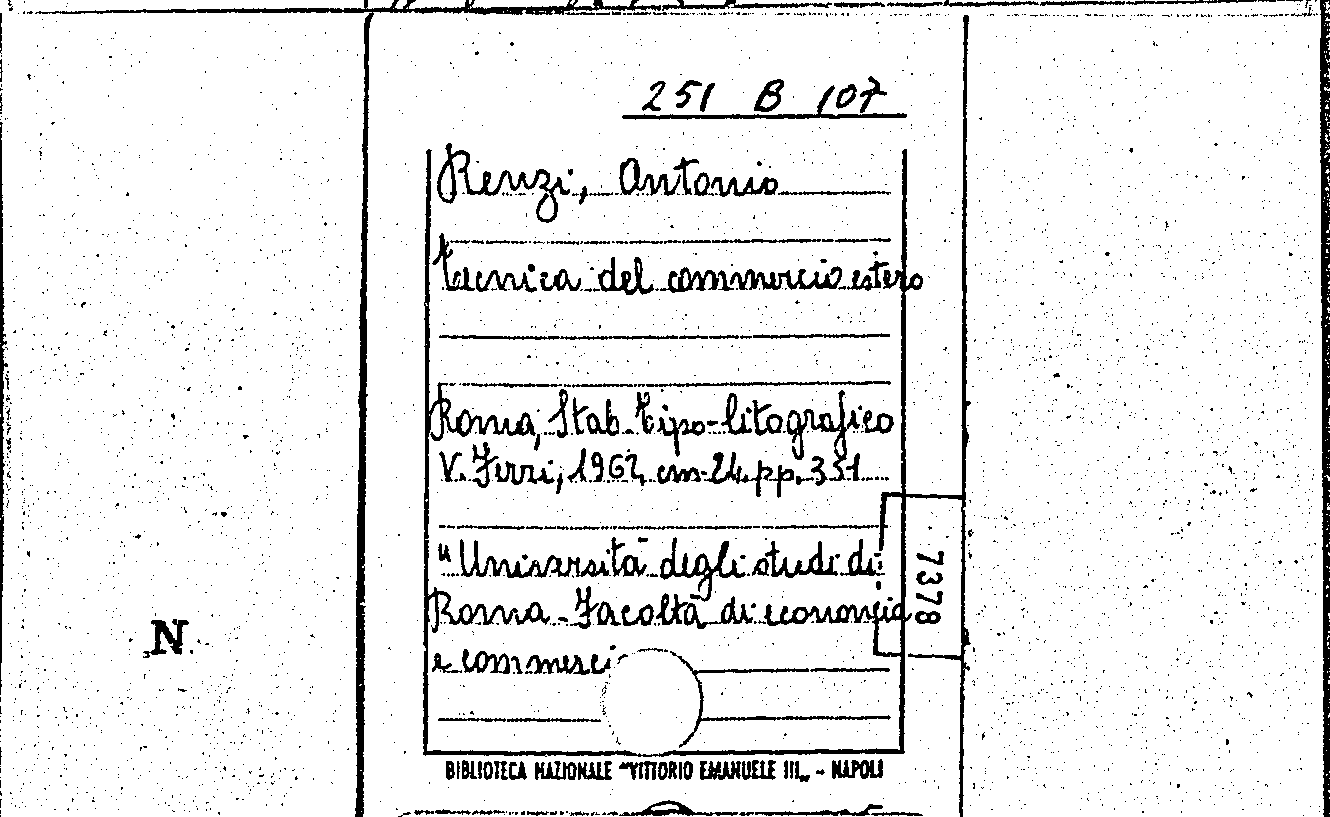 251 B 107
Renzi, Antonio
Tecnica del commercio estero
Roma, Stab. Tipo-litografico
V. Ferri, 1962, cm. 24. pp. 351
"Università degli studi di
Roma - Facoltà di economia
e commercio
7378
N
BIBLIOTECA NAZIONALE "VITTORIO EMANUELE III„ - NAPOLI